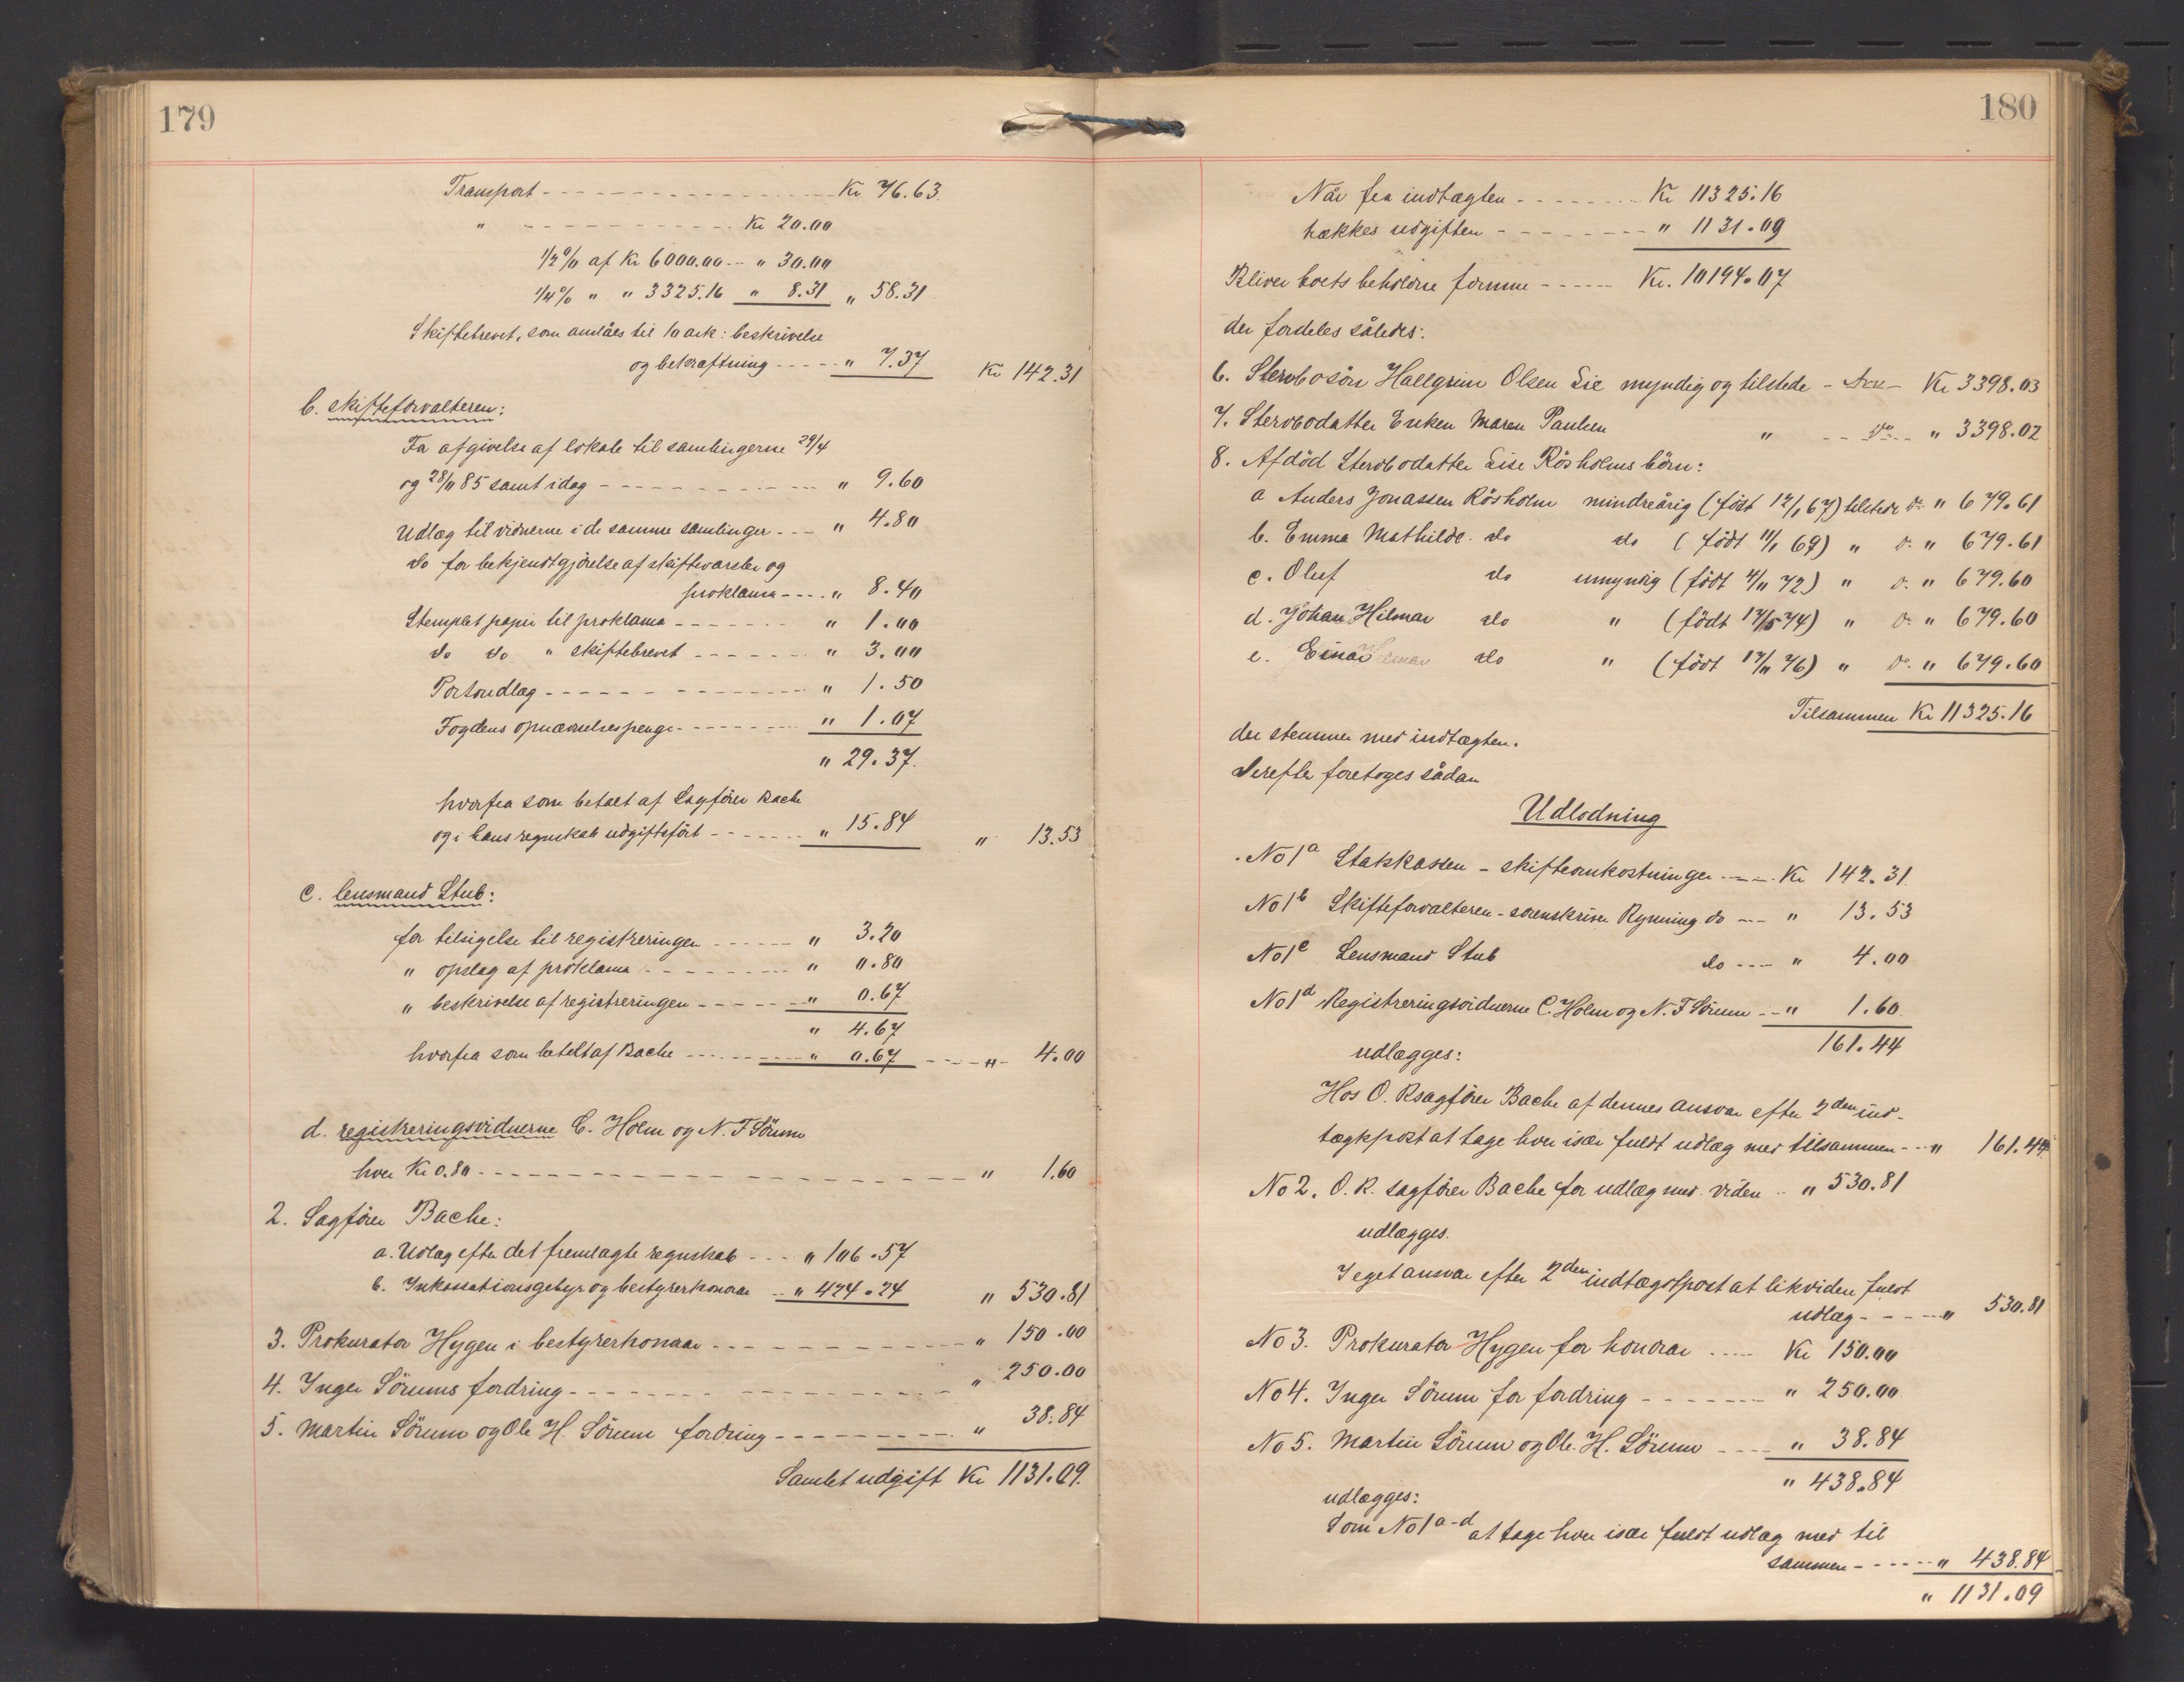 179
Transport - - - - Kr 76.63.
" - - - - Kr 20.00
1/2 % af Kr 6000.00 - - " 30.00
1/4 % " " 3325.16 " 8.31 " 58.31
Skiftebrevet, som anslåes til 10 ark: beskrivelse
og bekræftning - - - - " 7.37 Kr 142.31
b. skifteforvalteren:
For afgivelse af lokale til samlingerne 29/4
og 28/11 85 samt idag - - - - " 9.60
Udlæg til vidnerne i de samme samlinger - - - " 4.80
do for bekjendtgjørelse af skiftevarsler og
proklama - - - - " 8.40
Stemplet papir til proklama - - - - " 1.00
do do " skiftebrevet - - - - " 3.00
Portoudlæg - - - - " 1.50
Fogdens opnævnelsespenge - - - - " 1.07
" 29.37.
hvorfra som betalt af Sagfører Bache
og i hans regnskab udgiftsført - - - - " 15.84 " 13.53
c. lensmand Stub:
for tilsigelse til registreringen - - - - " 3.20
" opslag af proklama - - - - " 0.80
" beskrivelse af registreringen - - - - " 0.67
" 4.67
hvorfra som betalt af Bache - - - - " 0.67 - - - " - 4.00
d. registreringsvidnerne C. Holm og N. F Sörum
hver Kr 0.80 - - - - " 1.60
2. Sagfører Bache:
a. Udlæg efter det fremlagte regnskab - - - " 106.57
b. Inkassationsgebyr og bestyrerhonorar - - " 424.24 " 530.81
3. Prokurator Hygen i bestyrerhonorar - - - - " 150.00
4. Inger Sörums fordring - - - - " 250.00
5. Martin Sörum og Ole H. Sörum fordring - - - - " 38.84
Samlet udgift Kr 1131.09.
180
Når fra indtægten - - - - Kr 11325.16
trækkes udgiften - - - - " 1131.09
Bliver boets beholdne formue - - - - Kr. 10194.07
der fordeles således:
6. Stervbosön Hallgrim Olsen Lie myndig og tilstede - Arv - Kr 3398.03
7. Stervbodatter Enken Maren Paulsen " - - do - - " 3398.02
8. Afdöd Stervbodatter Lise Rösholms börn:
a Anders Jonassen Rösholm mindreårig (födt 12/1 67) tilstede do " 679.61
b. Emma Mathilde do do (födt 11/1 69) " do " 679.61
c. Oluf do umyndig (födt 4/11 72) " do " 679.60
d. Johan Hilmar do " (födt 17/5 74) " do " 679.60
e. Einar do " (födt 17/11 76) " do " 679.60
Tilsammen Kr 11325.16
der stemmer med indtægten.
Derefter foretoges sådan
Udlodning
No 1a Statskassen - skifteomkostninger - - - Kr 142.31.
No 1b Skifteforvalteren - sorenskriver Rynning do - - - " 13.53
No 1c Lensmand Stub do - - - " 4.00
No 1d Registreringsvidnerne C. Holm og N. F Sörum - - " 1.60
161.44
udlægges:
Hos O. Rsagfører Bache af dennes ansvar efter 2den ind-
tægtspost at tage hver især fuldt udlæg med tilsammen - - - " 161.44
No 2. O. R. sagfører Bache for udlæg med viden - - " 530.81
udlægges.
I eget ansvar efter 2den indtægtspost at likvidere fuldt
udlæg - - - - " 530.81
No 3. Prokurator Hygen for honorar - - - - Kr 150.00
No 4. Inger Sörum for fordring - - - - " 250.00
No 5. Martin Sörum og Ole H. Sörum - - - - " 38.84
" 438.84
udlægges:
Som No 1 a-d at tage hver især fuldt udlæg med til
sammen - - - - " 438.84
" 1131.09